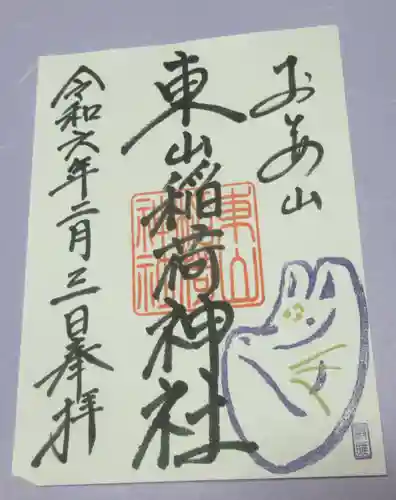 お姜山
東山稲荷神社
東山稲荷神社
令和六年二月三日奉拝